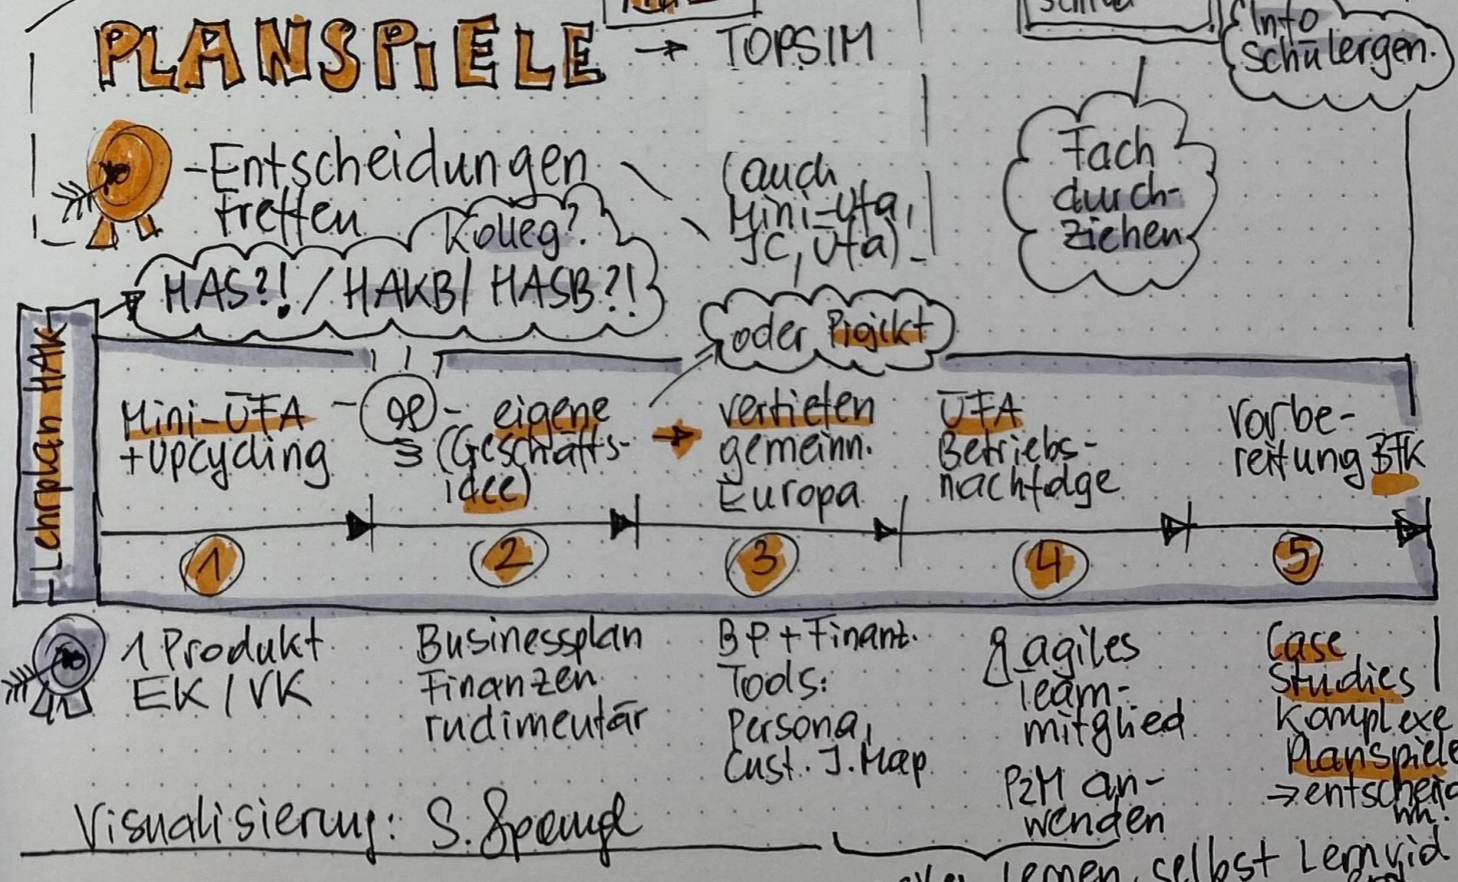 PLANSPIELE → TOPSIM
Info
Schülergen.
-Entscheidungen
treffen
(auch
Mini-Üfa,
JC, Üfa)
Fach
durch-
ziehen
Kolleg?
HAS?! / HAKB/ HASB?!
oder Projekt
Lehrplan HAK
Mini-ÜFA
+Upcycling
eigene
(Geschäfts-
idee)
→ vertiefen
gemeinn.
Europa
ÜFA
Betriebs-
nachfolge
Vorbe-
reitung BFK
1
2
3
4
5
1 Produkt
EK / VK
Businessplan
Finanzen
rudimentär
BP + Finanz.
Tools:
Persona,
Cust. J. Map
agiles
Team-
mitglied
P2M an-
wenden
Case
Studies
Komplexe
Planspiele
Visualisierung: S.
lernen, selbst Lernvid